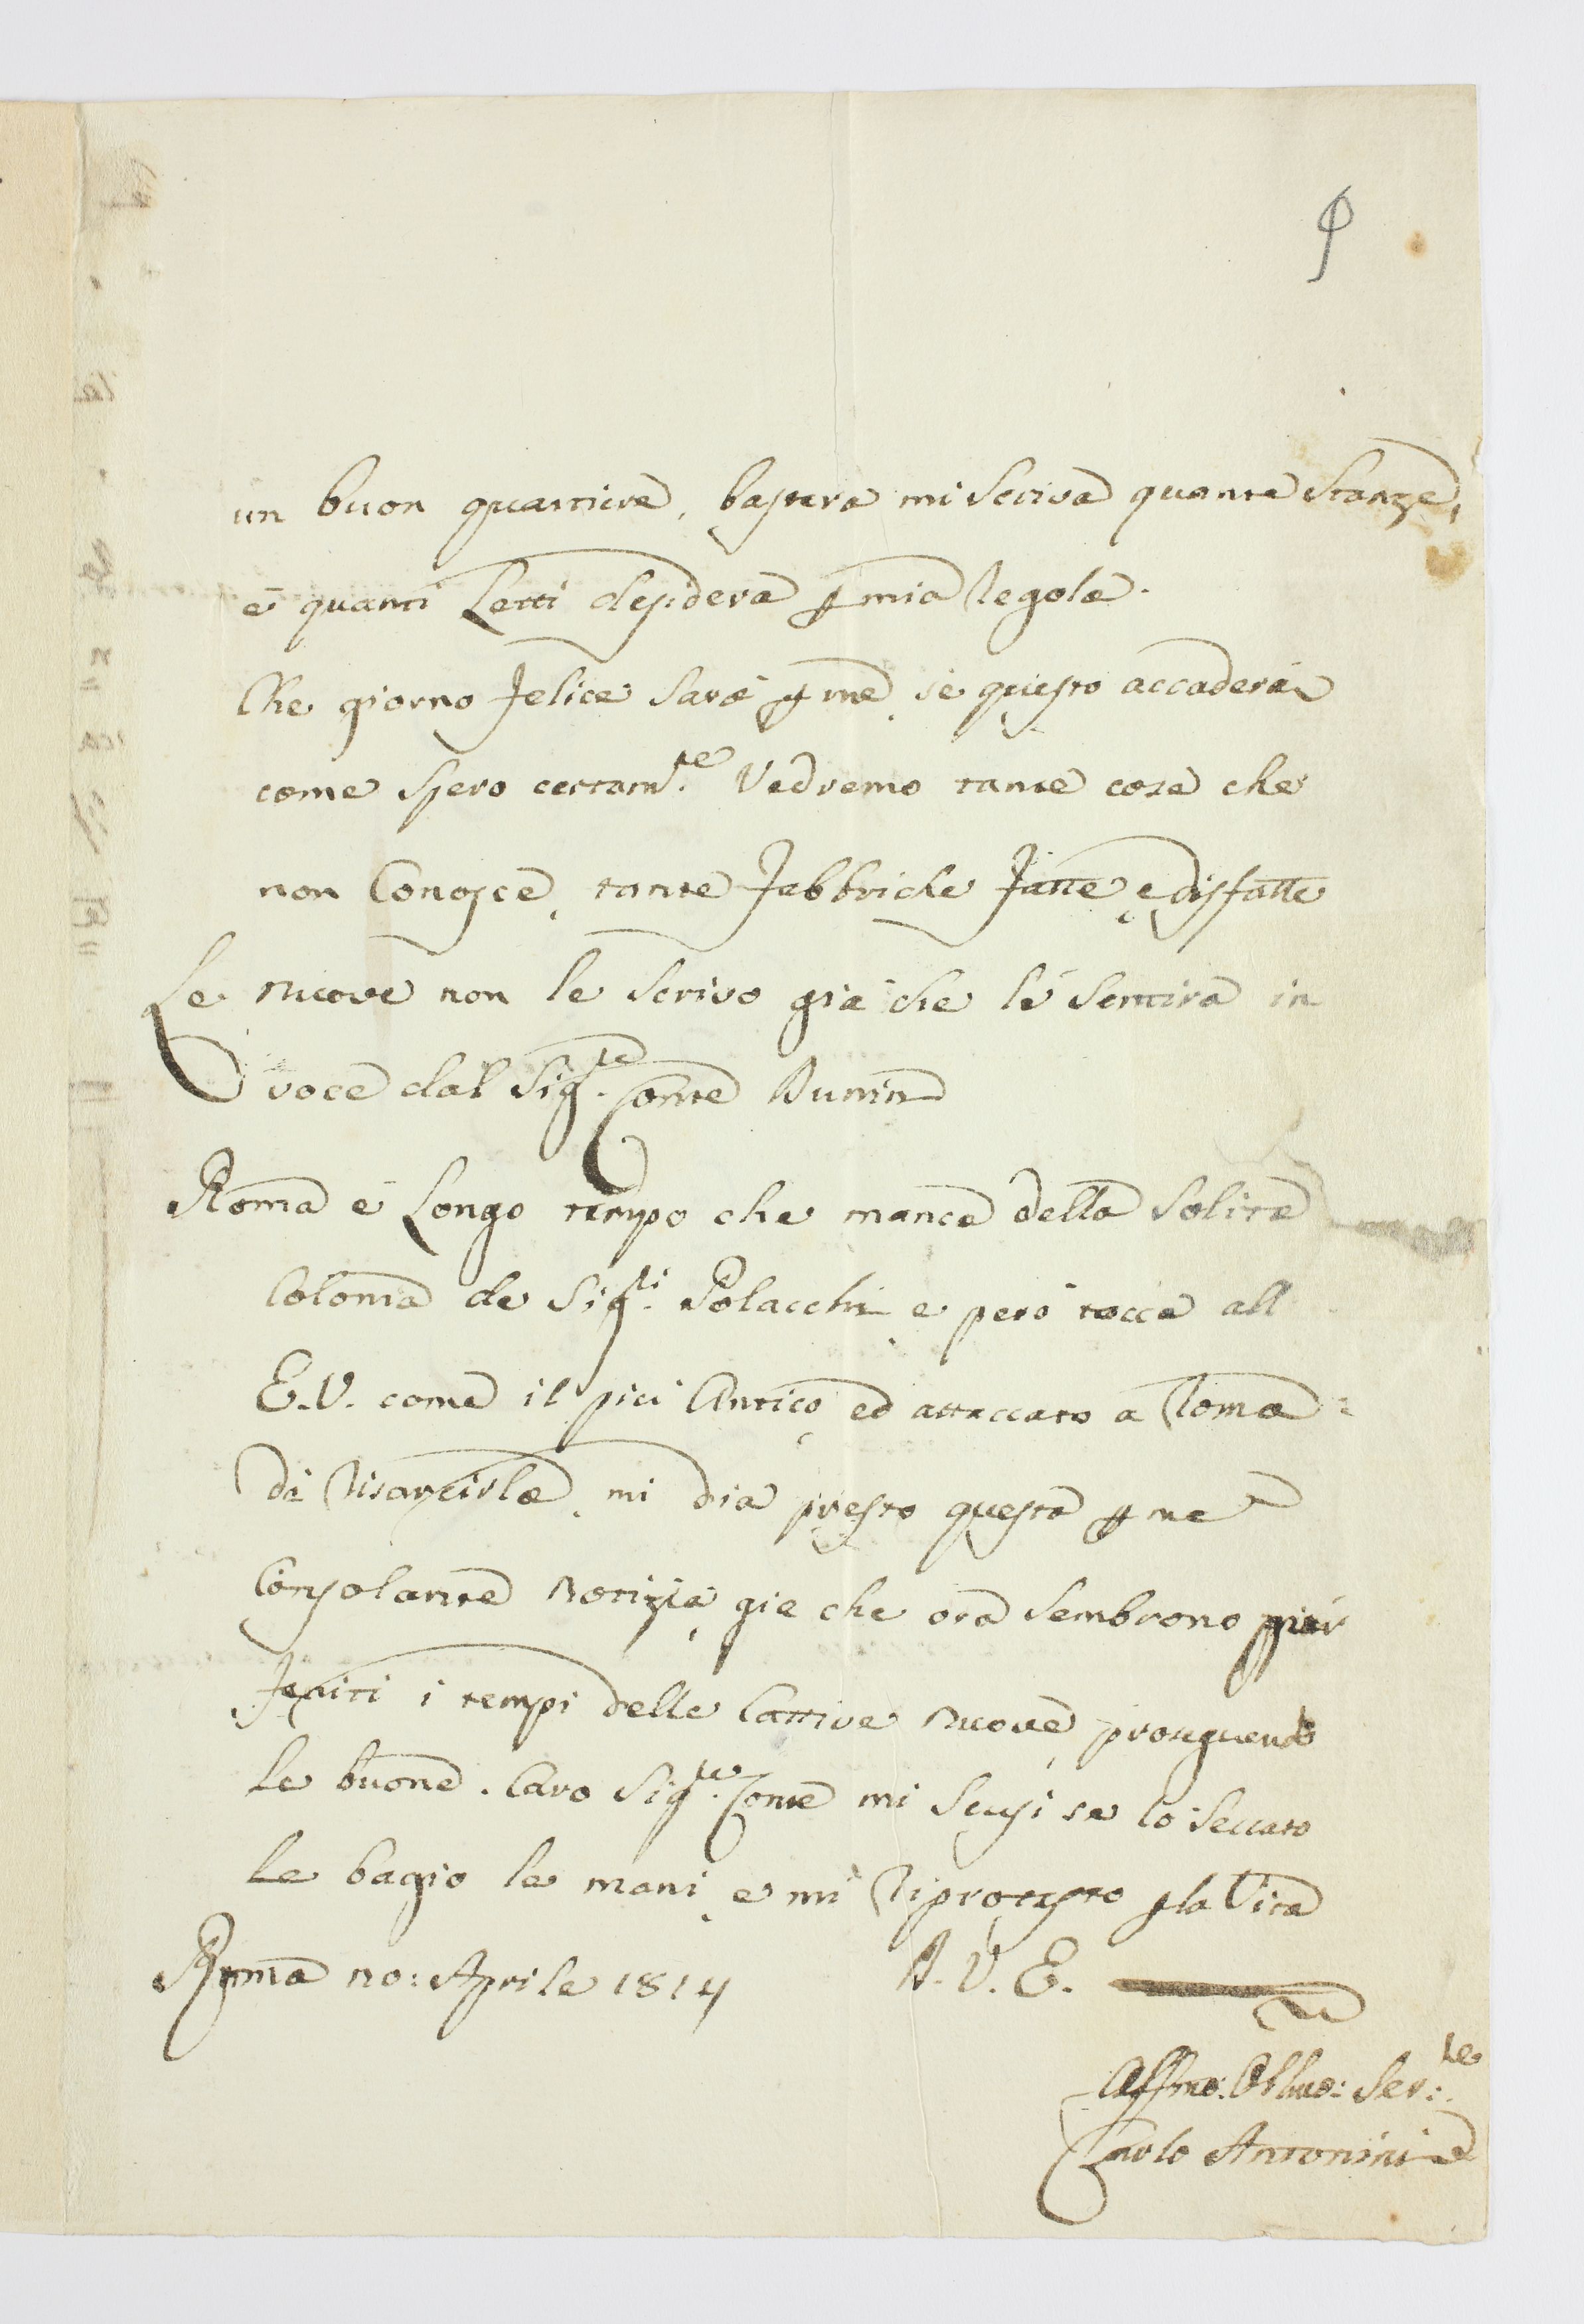 9
un buon quartiere, bastera mi scriva quante stanze,
e quanti Letti desidera p mia regola.
Che giorno felice sarà p me, se questo accaderà
come spero certam.te Vedremo tante cose che
non Conosce, tante fabbriche fatte, e disfatte
Le nuove non le scrivo già che le sentirà in
voce dal Sig.re Conte
Roma è Longo tempo che manca della solita
Colonia de Sig.ri Polacchi e però tocca all
E.V. come il più Antico, ed attaccato a Roma
di Risarcirla, mi dia presto questa p me
Consolante notizia, già che ora sembrono
feniti i tempi delle Cattive nuove, proseguendo
le buone. Caro Sig.re Conte mi scusi se lo seccato
Le bagio le mani, e mi riprotesto p la Vita
Roma 20: Aprile 1814
D. V. E.
Affmo: Obbmo: Ser:re
Carlo Antonini